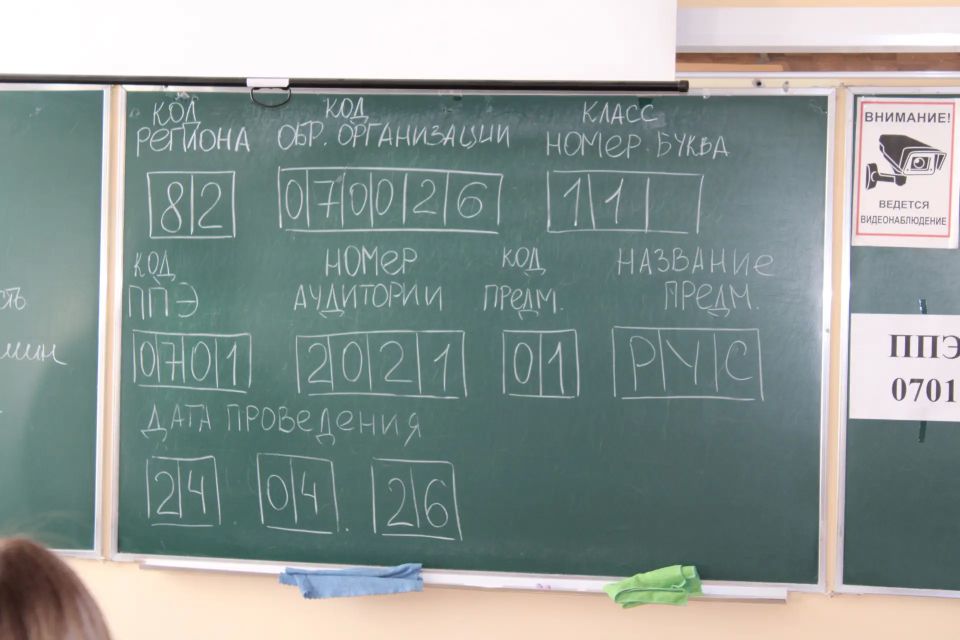 КОД
РЕГИОНА
КОД
ОБР. ОРГАНИЗАЦИИ
КЛАСС
НОМЕР. БУКВА
82
070026
11
КОД
ППЭ
НОМЕР
АУДИТОРИИ
КОД
ПРЕДМ.
НАЗВАНИЕ
ПРЕДМ.
0701
2021
01
РУС
ДАТА ПРОВЕДЕНИЯ
24. 04. 26
ВНИМАНИЕ!
ВЕДЕТСЯ
ВИДЕОНАБЛЮДЕНИЕ
ППЭ
0701